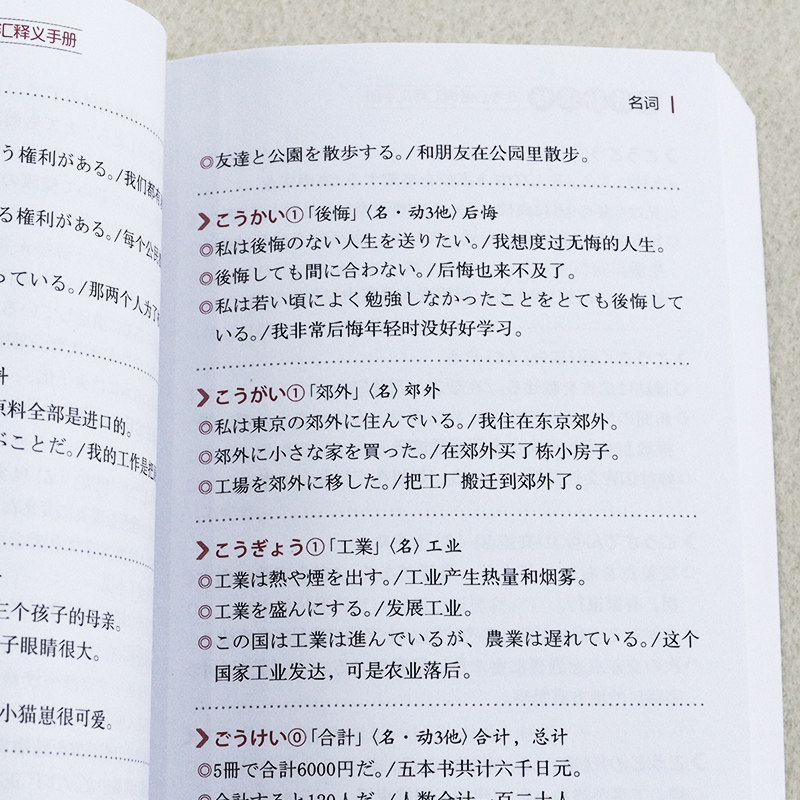 汇释义手册
う権利がある。/我们都有
る権利がある。/每个公民
っている。/那两个人为了
料
原料全部是进口的。
ぶことだ。/我的工作是把
三个孩子的母亲。
子眼睛很大。
小猫崽很可爱。
名词
◎友達と公園を散歩する。/和朋友在公园里散步。
こうかい①「後悔」〈名・动3他〉后悔
◎私は後悔のない人生を送りたい。/我想度过无悔的人生。
◎後悔しても間に合わない。/后悔也来不及了。
◎私は若い頃によく勉強しなかったことをとても後悔して
いる。/我非常后悔年轻时没好好学习。
こうがい①「郊外」〈名〉郊外
◎私は東京の郊外に住んでいる。/我住在东京郊外。
◎郊外に小さな家を買った。/在郊外买了栋小房子。
◎工場を郊外に移した。/把工厂搬迁到郊外了。
こうぎょう①「工業」〈名〉工业
◎工業は熱や煙を出す。/工业产生热量和烟雾。
◎工業を盛んにする。/发展工业。
◎この国は工業は進んでいるが、農業は遅れている。/这个
国家工业发达，可是农业落后。
ごうけい⓪「合計」〈名・动3他〉合计，总计
◎5冊で合計6000円だ。/五本书共计六千日元。
◎合計すると120人だ。/人数合计一百二十人。